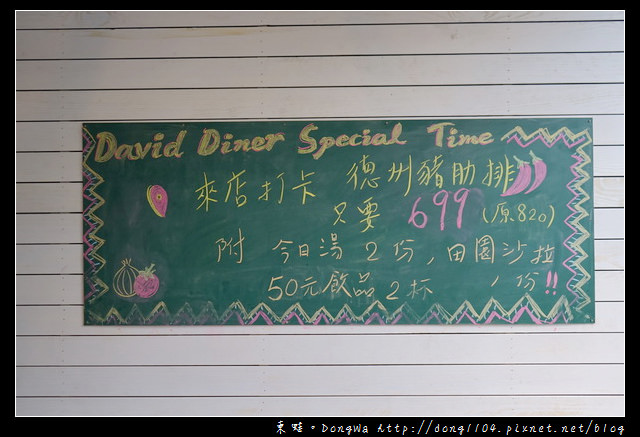 David Diner Special Time
來店打卡 德州豬肋排
只要 699 (原820)
附 今日湯 2 份，田園沙拉
50元飲品 2 杯 1 份!!
東蛙。Dongwa http://dong1104.pixnet.net/blog